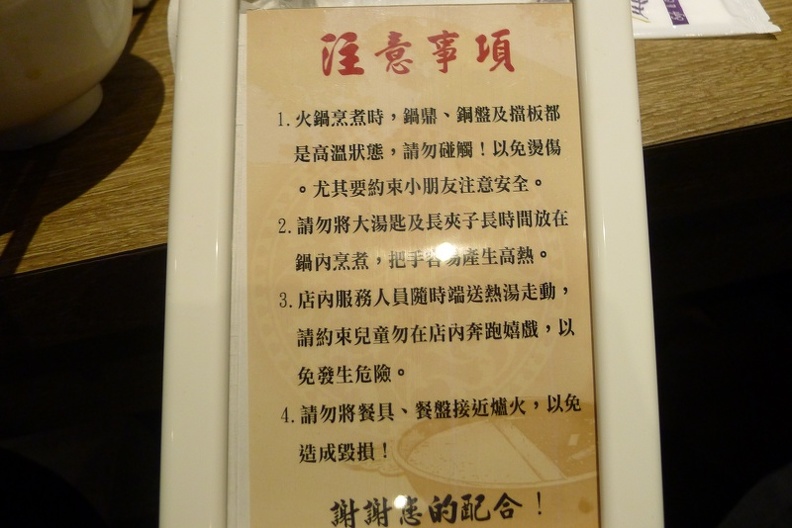 注意事項
1.火鍋烹煮時，鍋鼎、銅盤及擋板都
是高溫狀態，請勿碰觸！以免燙傷
。尤其要約束小朋友注意安全。
2.請勿將大湯匙及長夾子長時間放在
鍋內烹煮，把手容易產生高熱。
3.店內服務人員隨時端送熱湯走動，
請約束兒童勿在店內奔跑嬉戲，以
免發生危險。
4.請勿將餐具、餐盤接近爐火，以免
造成毀損！
謝謝您的配合！